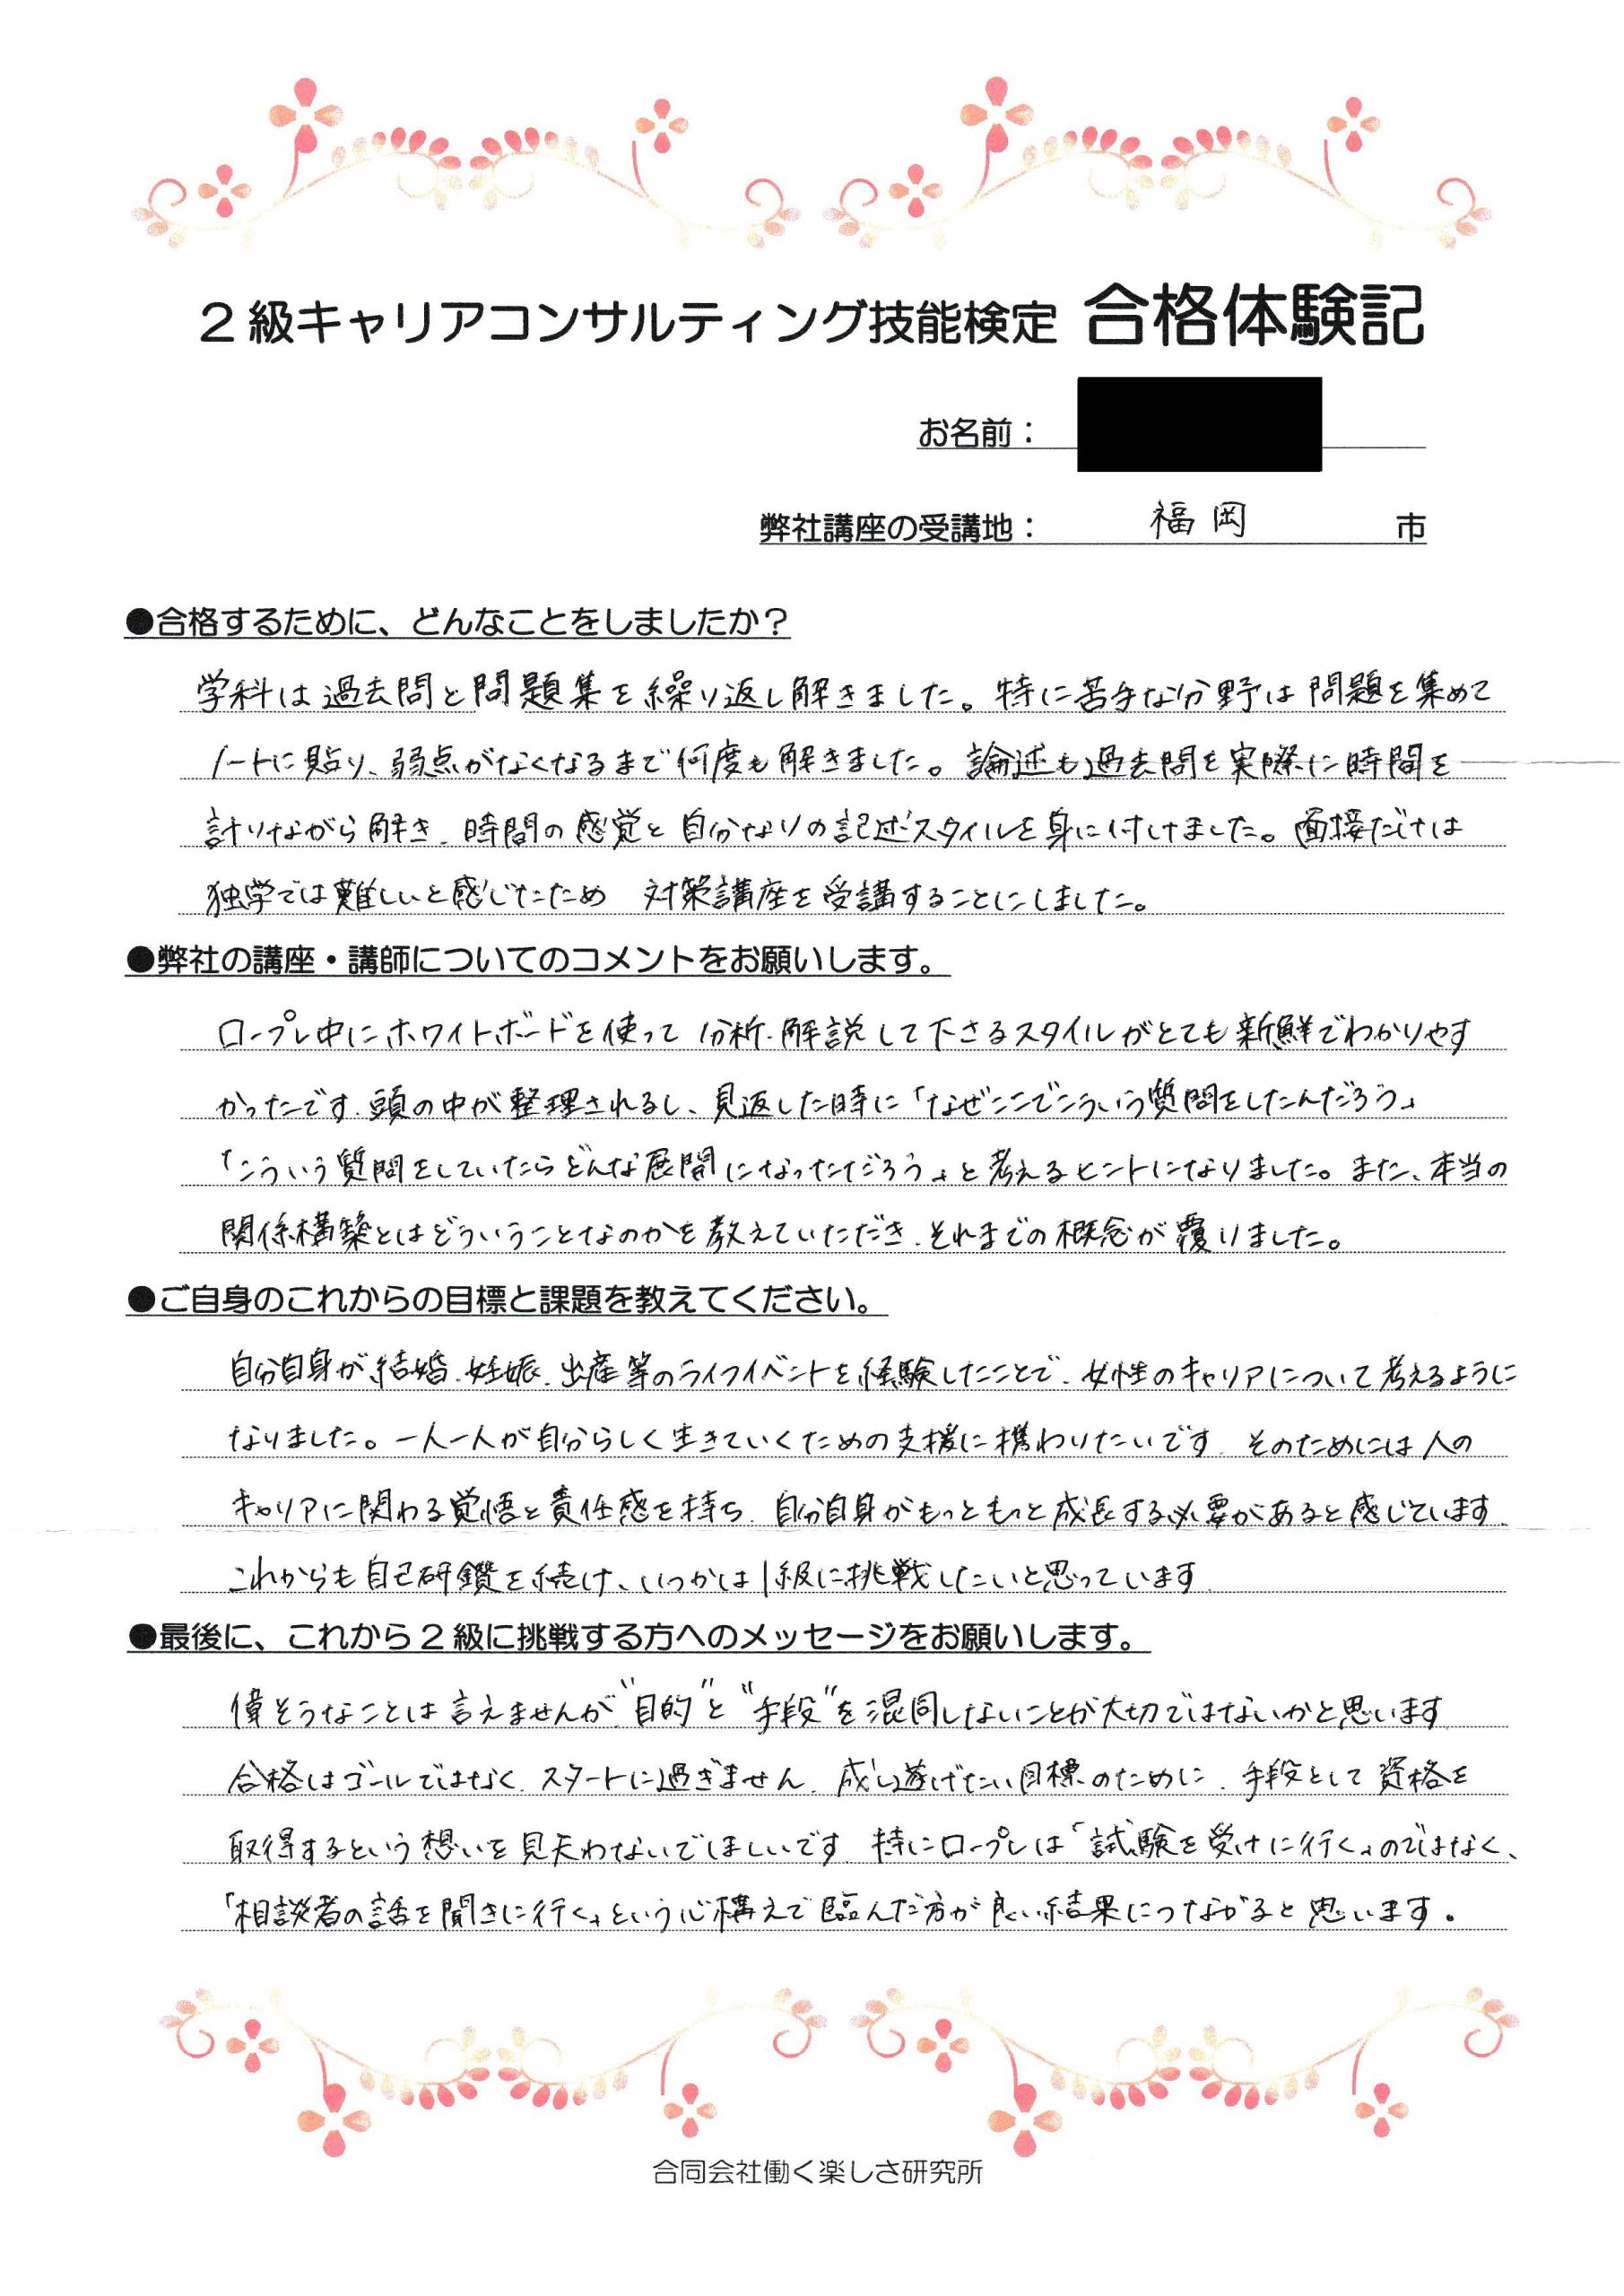 2級キャリアコンサルティング技能検定 合格体験記
お名前：
弊社講座の受講地： 福岡 市
●合格するために、どんなことをしましたか？
学科は過去問と問題集を繰り返し解きました。特に苦手な分野は問題を集めて
ノートに貼り、弱点がなくなるまで何度も解きました。論述も過去問を実際に時間を
計りながら解き、時間の感覚と自分なりの記述スタイルを身に付けました。面接だけは
独学では難しいと感じたため 対策講座を受講することにしました。
●弊社の講座・講師についてのコメントをお願いします。
ロープレ中にホワイトボードを使って分析・解説して下さるスタイルがとても新鮮でわかりやす
かったです。頭の中が整理されるし、見返した時に「なぜここでこういう質問をしたんだろう」
「こういう質問をしていたらどんな展開になっただろう」と考えるヒントになりました。また、本当の
関係構築とはどういうことなのかを教えていただき、それまでの概念が覆りました。
●ご自身のこれからの目標と課題を教えてください。
自分自身が結婚、妊娠、出産等のライフイベントを経験したことで、女性のキャリアについて考えるように
なりました。一人一人が自分らしく生きていくための支援に携わりたいです。そのためには人の
キャリアに関わる覚悟と責任感を持ち、自分自身がもっともっと成長する必要があると感じています。
これからも自己研鑽を続け、いつかは1級に挑戦したいと思っています。
●最後に、これから2級に挑戦する方へのメッセージをお願いします。
偉そうなことは言えませんが、"目的"と"手段"を混同しないことが大切ではないかと思います。
合格はゴールではなく、スタートに過ぎません。成し遂げたい目標のために、手段として資格を
取得するという想いを見失わないでほしいです。特にロープレは「試験を受けに行く」のではなく、
「相談者の話を聞きに行く」という心構えで臨んだ方が良い結果につながると思います。
合同会社働く楽しさ研究所